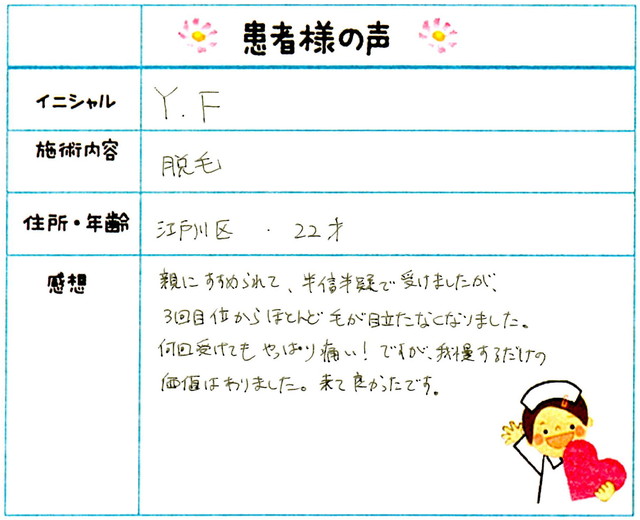 患者様の声
イニシャル Y.F
施術内容 脱毛
住所・年齢 江戸川区 ・ 22才
感想 親にすすめられて、半信半疑で受けましたが、
3回目位からほとんど毛が目立たなくなりました。
何回受けてもやっぱり痛い!ですが、我慢するだけの
価値はありました。来て良かったです。